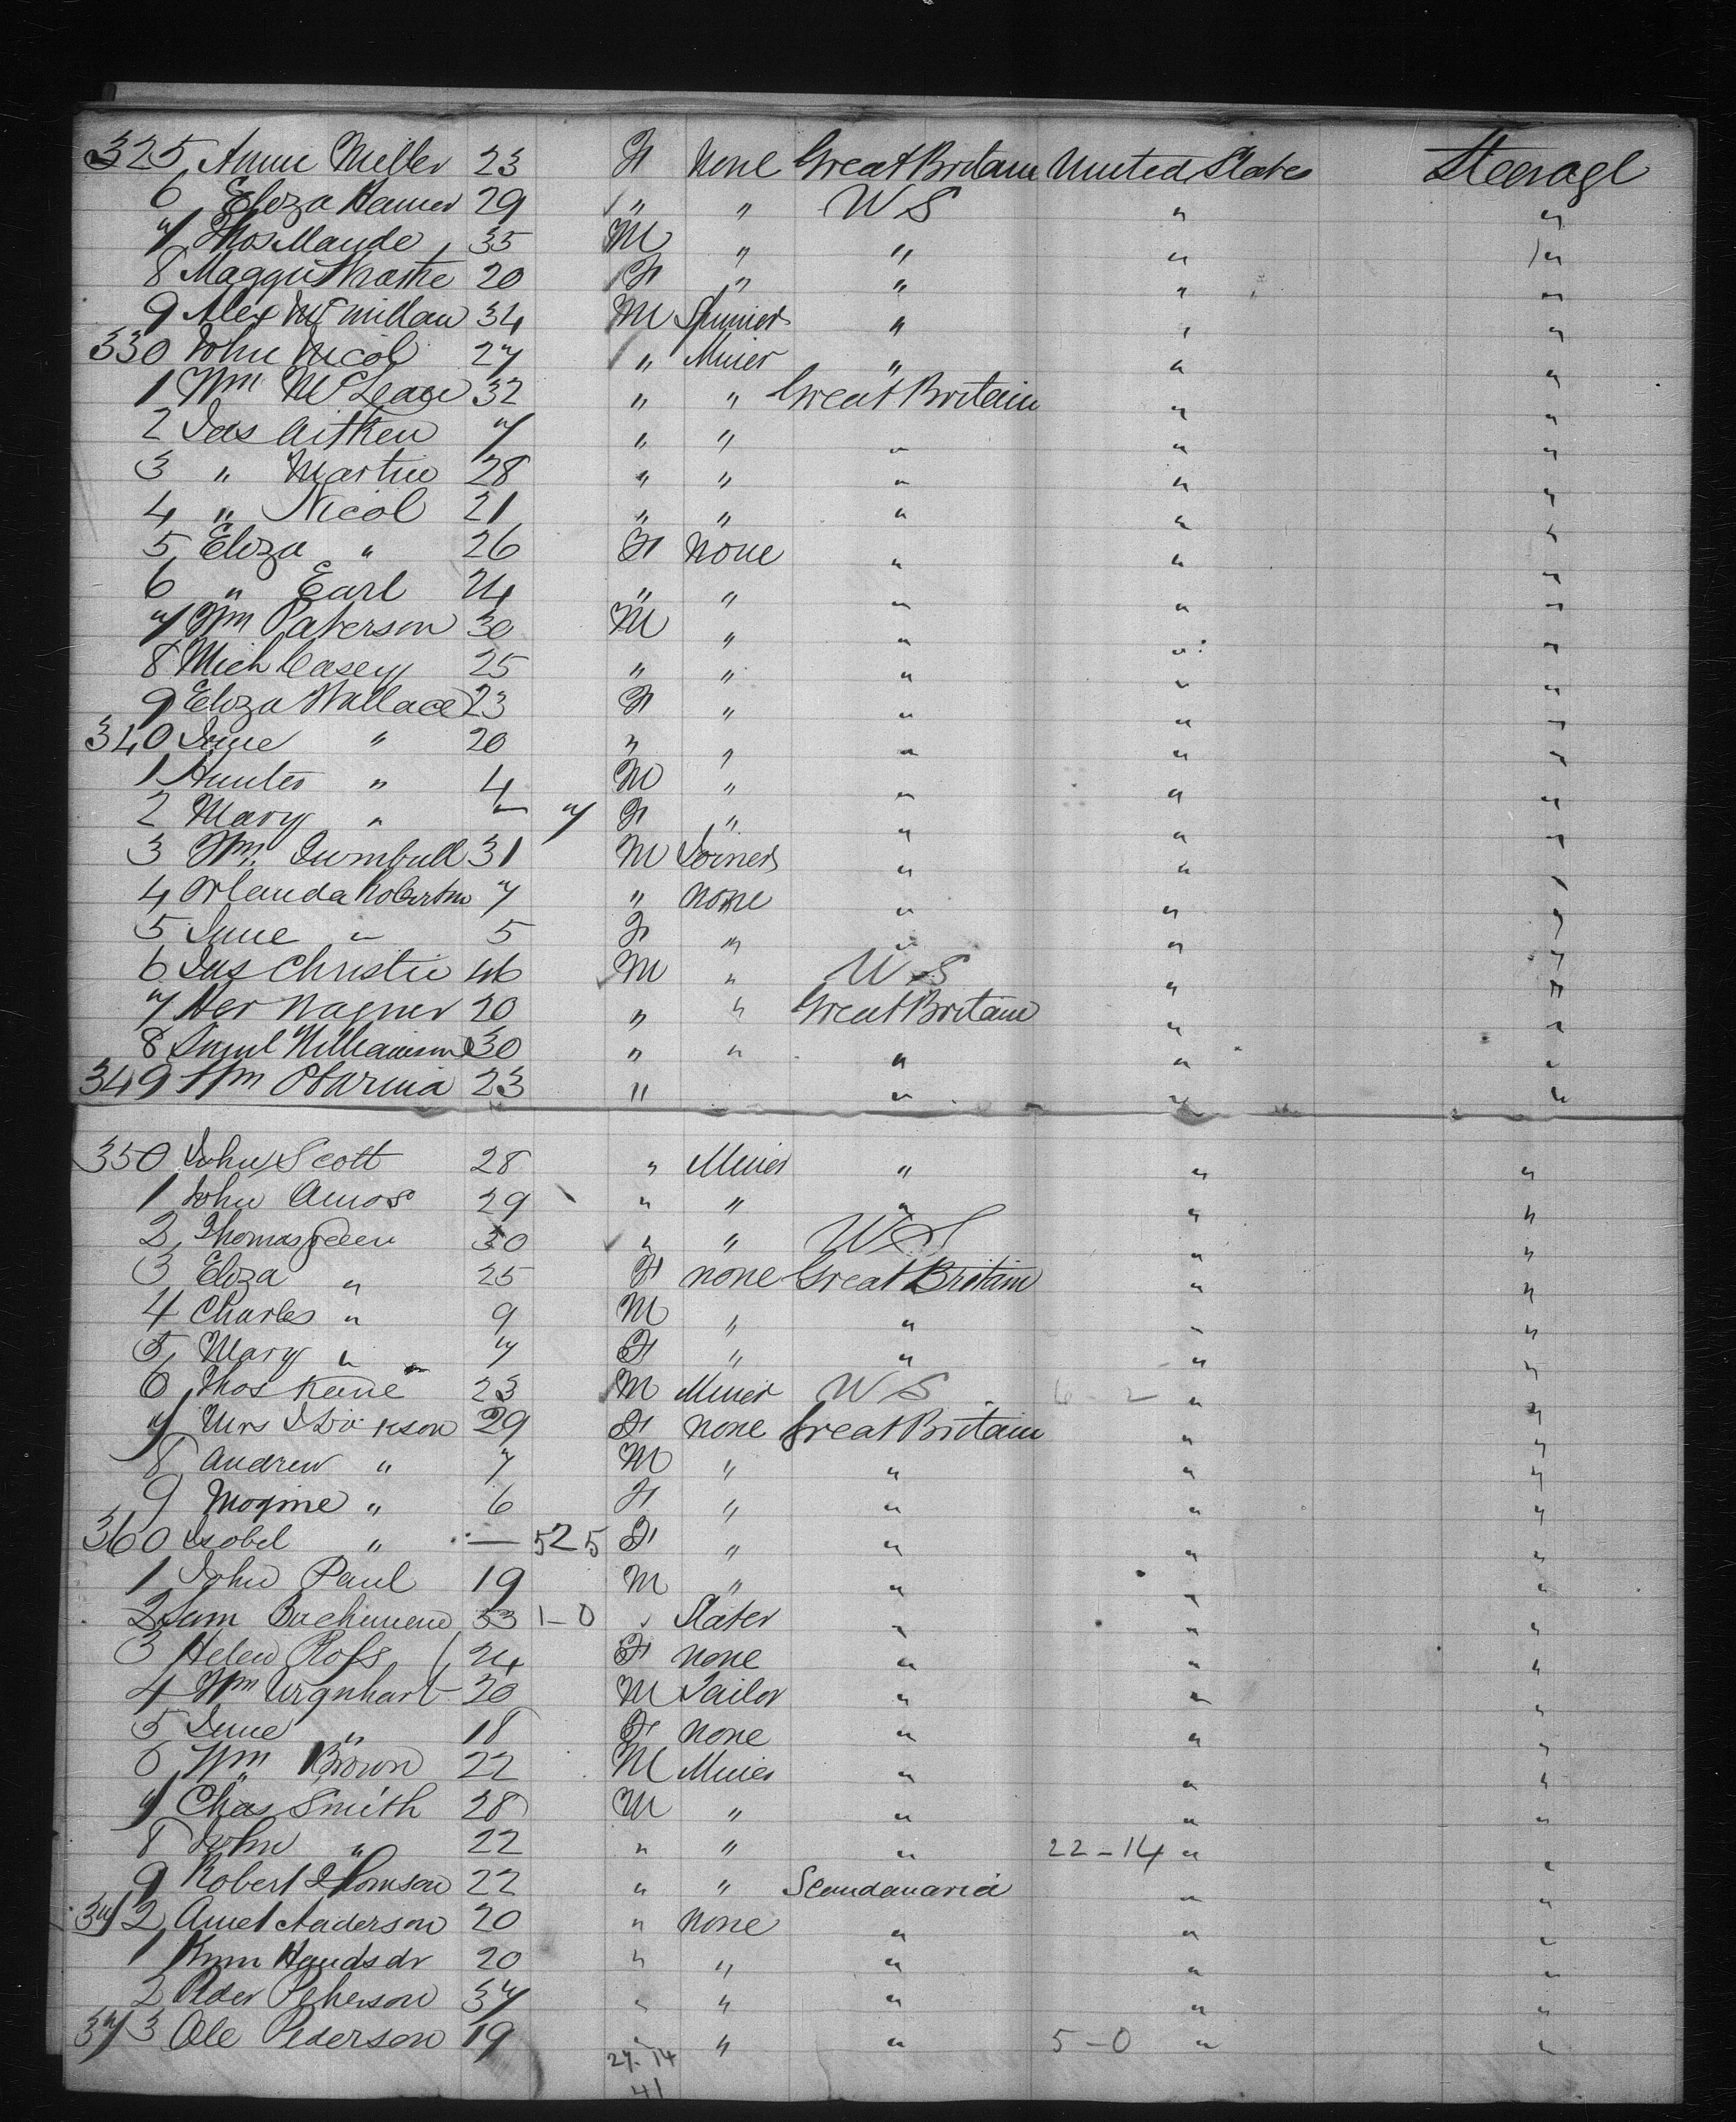 325 Annie Miller 23 F None Great Britain United States Steerage
6 Eliza Hamer 29 " " U S " "
7 Thos Maude 35 M " " " "
8 Maggie 20 F " " " "
9 Alex McMillan 34 M Spinner " " "
330 John Nicol 27 " Miner " " "
1 Wm McLean 32 " " Great Britain " "
2 Jas Aitken 7 " " " " "
3 " Martin 28 " " " " "
4 " Nicol 21 " " " " "
5 Eliza " 26 F None " " "
6 " Earl 24 " " " " "
7 Wm Paterson 30 M " " " "
8 Mich Casey 25 " " " " "
9 Eliza Wallace 23 F " " " "
340 Jane " 20 " " " " "
1 Hunter " 4 M " " " "
2 Mary " — 7 F " " " "
3 Wm Turnbull 31 M Joiner " " "
4 Orlanda Robertson 7 " None " " "
5 Jane " 5 F " " " "
6 Jas Christie 46 M " U S " "
7 Her Wagner 20 " " Great Britain " "
8 Saml Williamson 30 " " " " "
349 Wm 23 " " " "
350 John Scott 28 " Miner " " "
1 John Amos 29 " " " " "
2 Thomas Green 30 " " U S " "
3 Eliza " 25 F none Great Britain " "
4 Charles " 9 M " " " "
5 Mary " 7 F " " " "
6 Thos Kane 23 M Miner U S 6-2 " "
7 Mrs J Dickson 29 F None Great Britain " "
8 Andrew " 7 M " " " "
9 " 6 F " " " "
360 Isobel " — 525 F " " " "
1 John Paul 19 M " " " "
2 Sam 33 1-0 " Slater " " "
3 Helen Ross 24 F none " " "
4 Wm Urquhart 20 M Tailor " " "
5 Jane " 18 F None " " "
6 Wm Brown 22 M Miner " " "
7 Chas Smith 28 M " " " "
8 John " 22 " " " 22-14 " "
9 Robert Thomson 22 " " Scandanavia " "
372 Anderson 20 " None " " "
1 20 " " " " "
2 Peder Peterson 37 " " " " "
373 Ole Pederson 19 " " " 5-0 " "
27-14
41